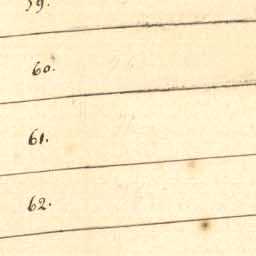 59.
60.
61.
62.